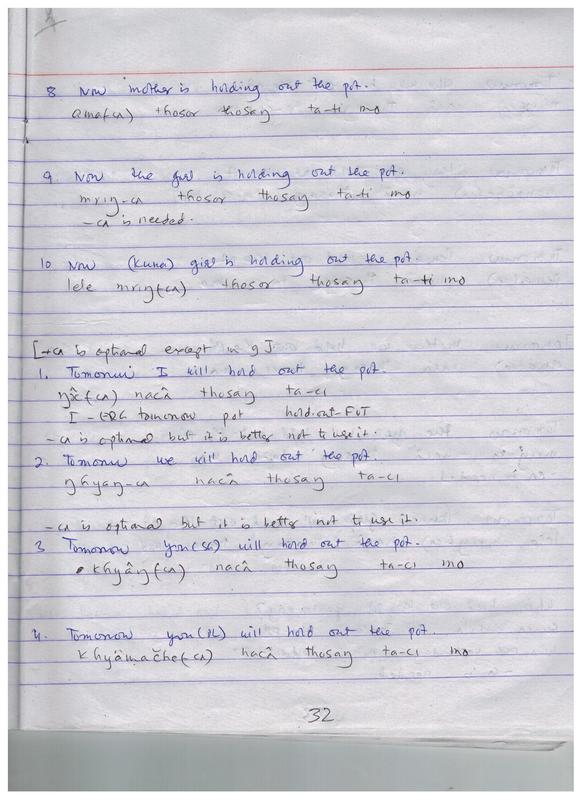 8 Now mother is holding out the pot.
ama(ca) thosor thosaŋ ta-ti mo
9. Now the girl is holding out the pot.
mriŋ-ca thosor thosaŋ ta-ti mo
-ca is needed.
10. Now (Kuna) girl is holding out the pot.
lele mriŋ(ca) thosor thosaŋ ta-ti mo
[-ca is optional except in 9].
1. Tomorrow I will hold out the pot.
(ca) nacâ thosaŋ ta-ci
I -ERG tomorrow pot hold.out-FUT
-ca is optional but it is better not to use it.
2. Tomorrow we will hold out the pot.
ŋhyaŋ-ca nacâ thosaŋ ta-ci
-ca is optional but it is better not to use it.
3 Tomorrow you(SG) will hold out the pot.
khyâŋ(ca) nacâ thosaŋ ta-ci mo
4. Tomorrow you(PL) will hold out the pot.
khyâmačhe(-ca) nacâ thosaŋ ta-ci mo
32